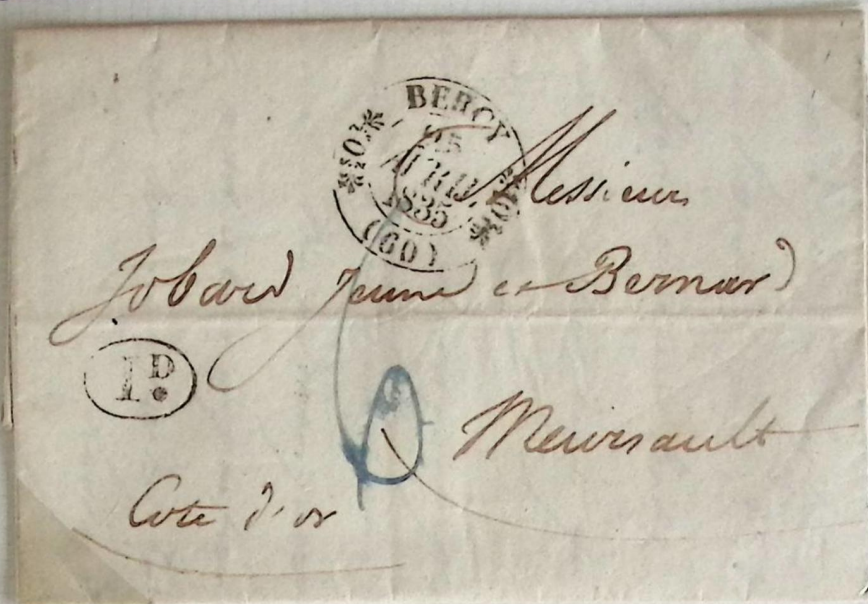 BERCY
25
AVRIL
1835
(60)
Messieurs
Jobard Jeune et Bernard
1D.
Meursault
Cote d'or